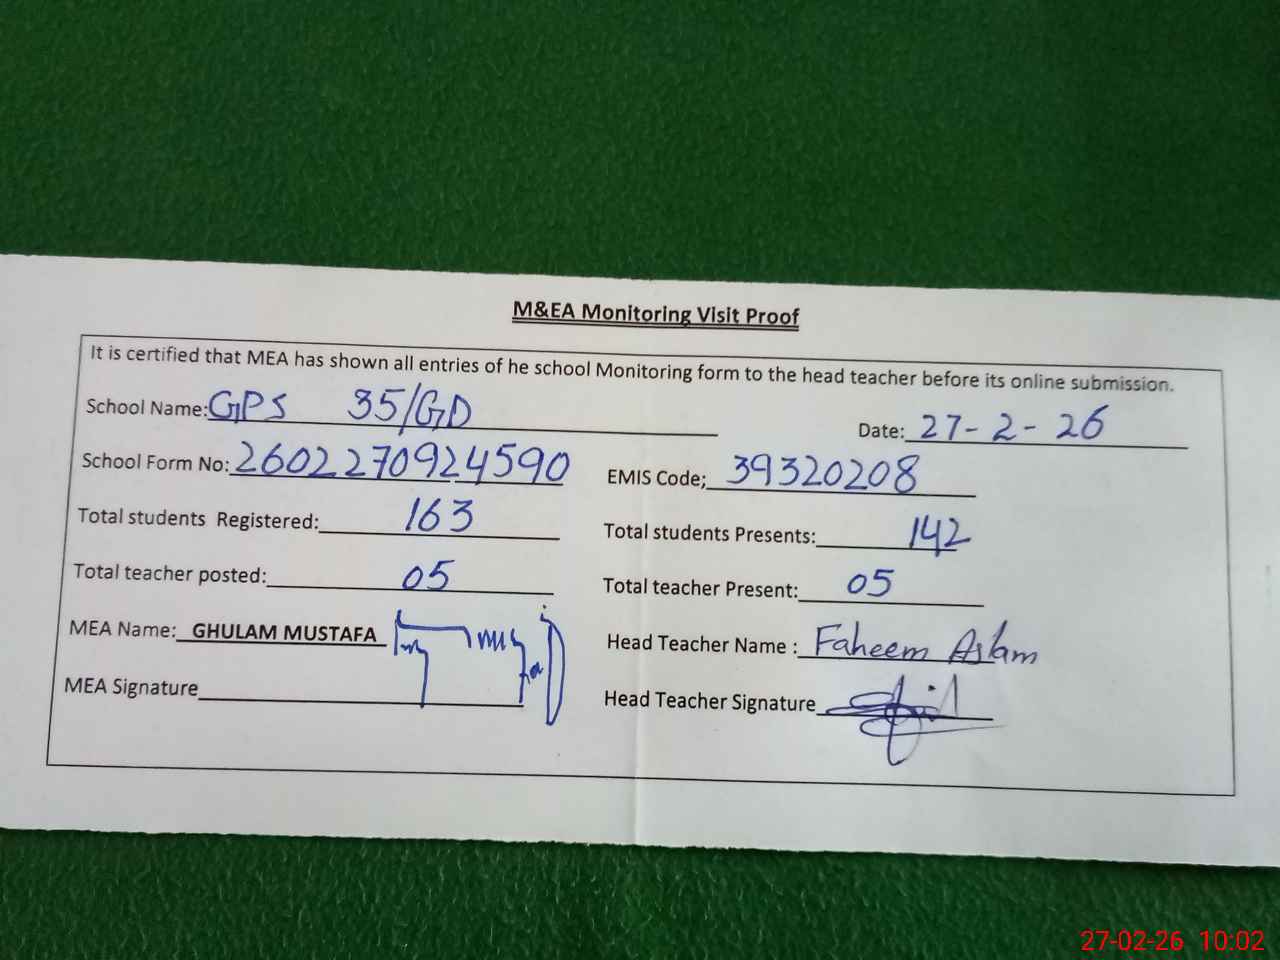 M&EA Monitoring Visit Proof
It is certified that MEA has shown all entries of he school Monitoring form to the head teacher before its online submission.
School Name: GPS 35/GD Date: 27-2-26
School Form No: 2602270924590 EMIS Code; 39320208
Total students Registered: 163 Total students Presents: 142
Total teacher posted: 05 Total teacher Present: 05
MEA Name: GHULAM MUSTAFA Head Teacher Name : Faheem Aslam
MEA Signature Head Teacher Signature
27-02-26 10:02